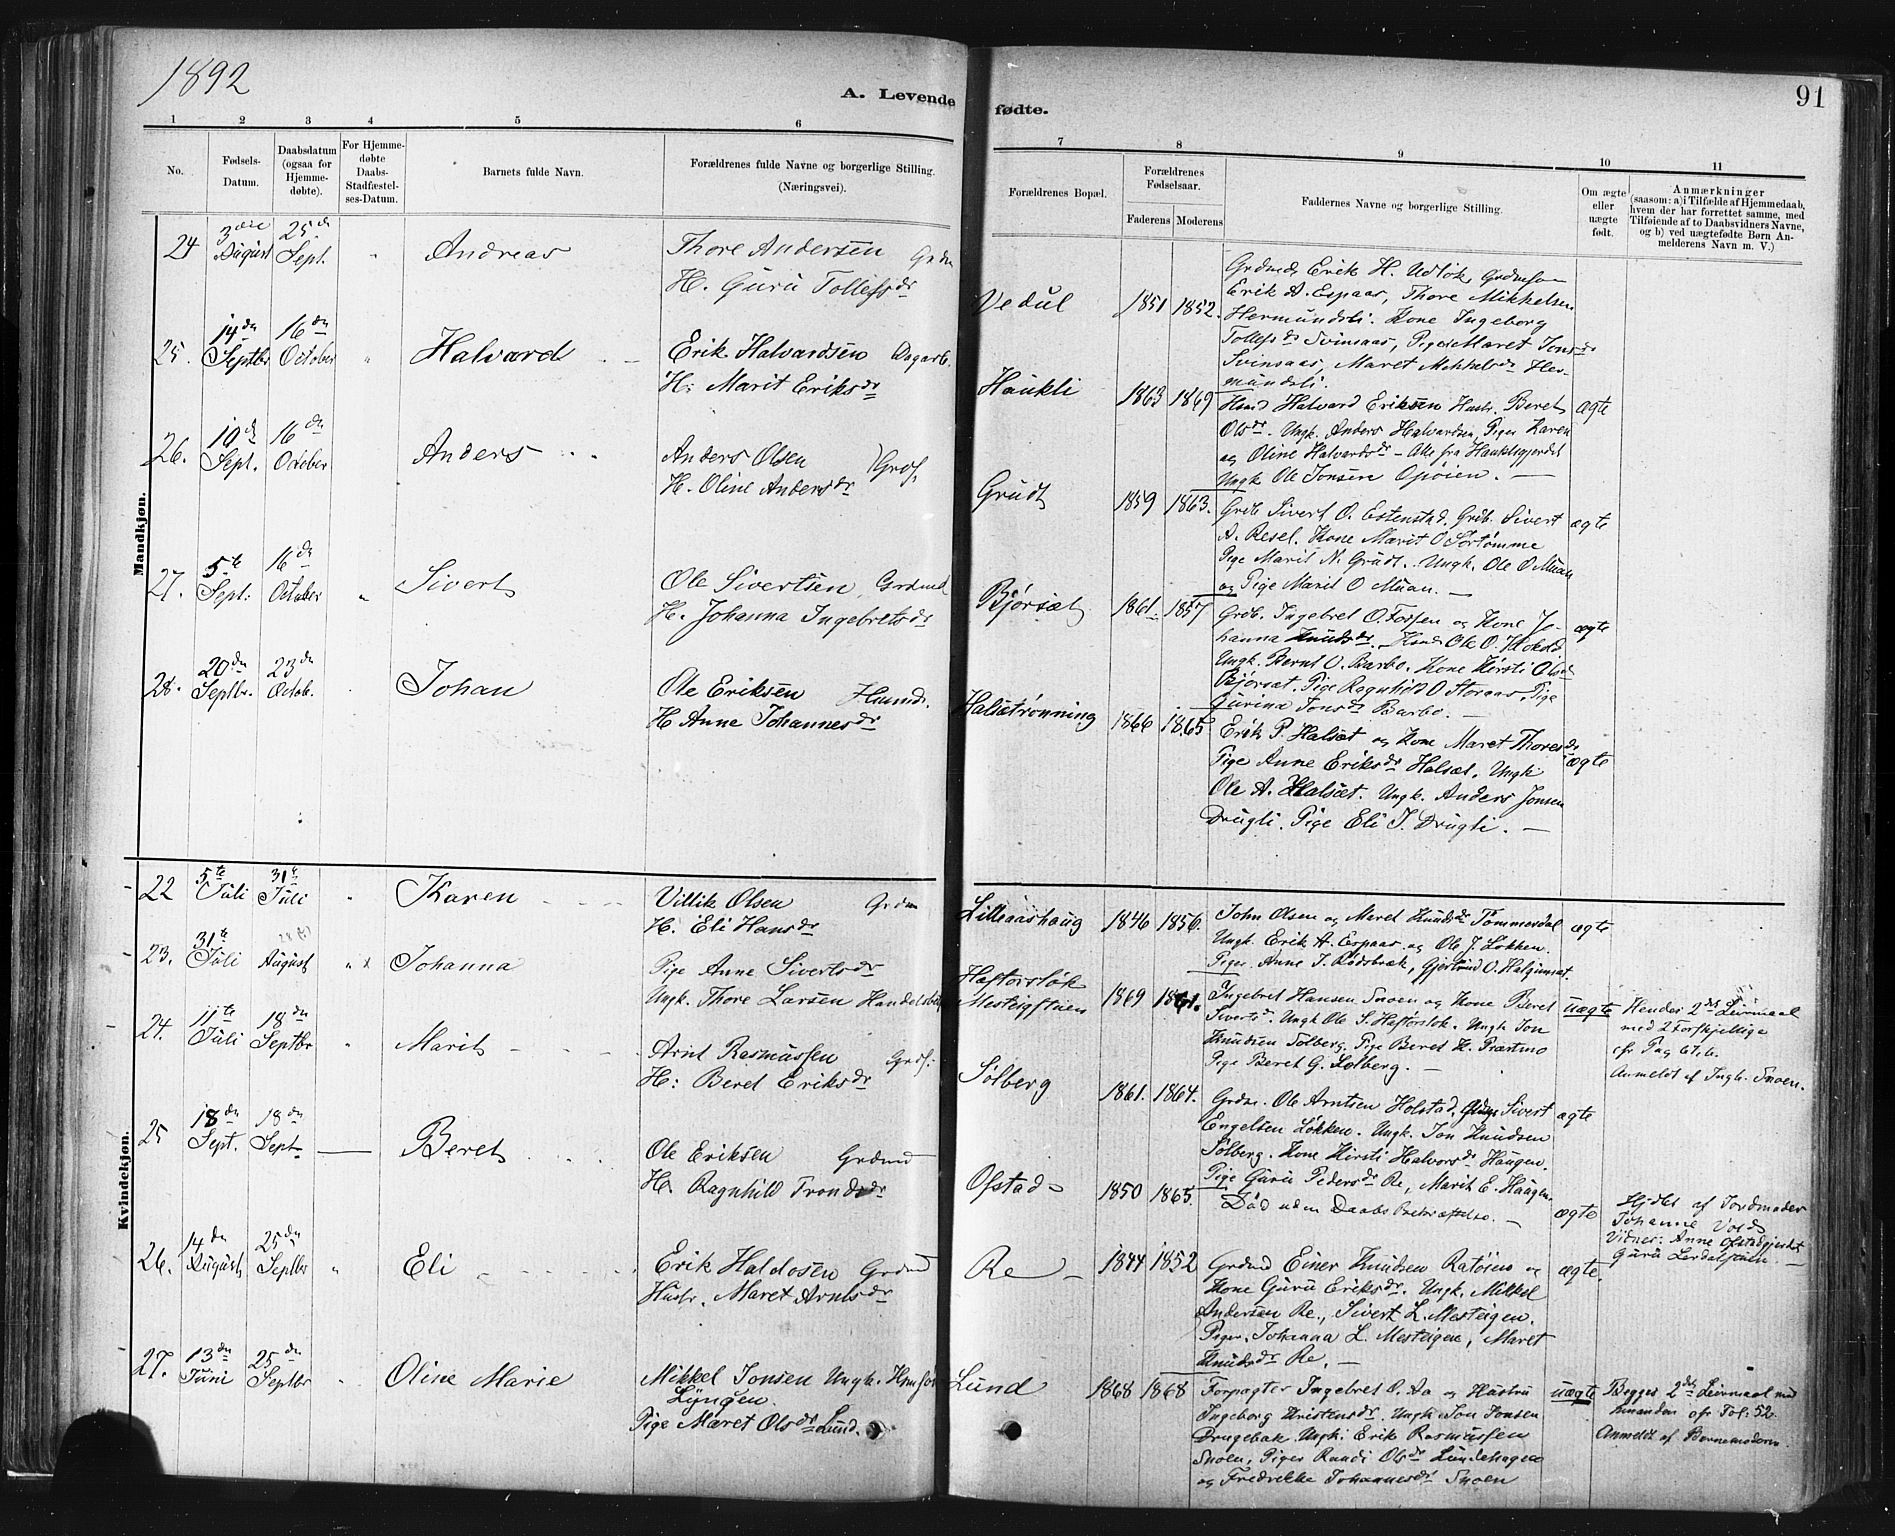 1892
A. Levende
fødte.
91
1 2 3 4 5 6 7 8 9 10 11
No.
Fødsels-
Datum.
Daabsdatum
(ogsaa for
Hjemme-
døbte).
For Hjemme-
døbte
Daabs-
Stadfæstel-
ses-Datum.
Barnets fulde Navn.
Forældrenes fulde Navne og borgerlige Stilling.
(Næringsvei).
Forældrenes Bopæl.
Forældrenes
Fødselsaar.
Faderens Moderens
Faddernes Navne og borgerlige Stilling.
Om ægte
eller
uægte
født.
Anmærkninger
(saasom: a) i Tilfælde af Hjemmedaab,
hvem der har forrettet samme, med
Tilføiende af to Daabsvidners Navne,
og b) ved uægtefødte Børn An-
melderens Navn m. V.)
Mandkjøn.
24 3die August 25de Sept. " Andreas
Thore Andersen Grdm
H. Guru Tollefsdr
Vedul 1851 1852.
Grdmd. Erik H. Udløk, Grdm
Erik A. Espaas, Thore Mikkelsen
Hermundsli. Kone Ingeborg
Tollefsdr Svinsaas, Piger Maret Jonsdr
Svinsaas, Maret Mikkelsdr Her-
mundsli.
25. 14de Septbr 16de October " Halvard
Erik Halvardsen Dagarb.
H: Marit Eriksdr
Haukli 1863 1869
Hsmd Halvard Eriksen Hustr. Beret
Olsdr. Ungk. Anders Halvardsen, Piger Karen
og Oline Halvardsdr – Alle fra Haukligjerdet
Ungk Ole Jonsen Opøien. —
ægte
26. 19de Sept. 16de October Anders
Anders Olsen
H. Oline Andersdr
Grudt 1859 1863.
Grdb Sivert O. Estenstad, Grdb. Sivert
A. Resel. Kone Marit O Sørtømme
Pige Marit N. Grudt. Ungk. Ole O Muan
og Pige Marit O Muan. —
ægte
27. 5te Sept. 16de October " Sivert
Ole Sivertsen, Grdmd
H. Johanna Ingebretsdr
Bjørsæt 1861. 1857
Grdb. Ingebret O. Fossen og Kone Jo-
hanna Knudsdr. Hsmd Ole O.
Ungk. Bernt O. Barbo. Kone Kirsti Olsdr
Bjørsæt. Pige Ragnhild O Storaas. Pige
Gurina Jonsdr Barbo. —
ægte
28. 20de Septbr. 23de Octob. Johan
Ole Eriksen Husmd.
H Anne Johannesdr
Halsætrønning 1866 1865
Erik P. Halsæt og Kone Maret Thoresdr
Pige Anne Eriksdr Halsæt. Ungk
Ole A. Halsæt. Ungk. Anders Jonsen
Drugli. Pige Eli J. Drugli. —
ægte
Kvindekjøn.
22 5te Juli 31te Juli " Karen
Villik Olsen Grdm
H. Eli Hansdr
Lilleaashaug 1846 1856.
John Olsen og Maret Knudsdr Tømmerdal
Ungk. Erik A. Espaas og Ole J. Løkken.
Piger. Anne J. Rødsbæk, Gjertrud O. Halgunsæt.
ægte
23. 31te Juli 28 August " x Johanna
Pige Anne Sivertsdr
Ungk. Thore Larsen
Haftorsløk
1869 1861.
Ingebret Hansen Snoen og Kone Beret
Sivertsdr. Ungk Ole S. Haftorsløk. Ungk Jon
Knudsen Solberg. Pige Beret K. Præstmo
Pige Beret G. Solberg. —
uægte
Hendes 2det Leiermaal
med 2 Forskjellige
cfr Pag 67.6.
Anmeldt af Ingb. Snoen.
24. 11te Juli 18de Septbr " Marit
Arnt Rasmussen
H: Beret Eriksdr
Solberg 1861. 1864.
Grdm. Ole Arntsen Holstad, Sivert
Engelsen Løkken. Ungk. Jon Knudsen
Solberg. Kone Kirsti Halvorsdr Haugen.
Pige Guru Pedersdr Re, Marit E. Haugen.
ægte
25 18de Sept. 18de Sept — Beret
Ole Eriksen Grdmd
H. Ragnhild Trondsdr
Ofstad 1850 1865.
Død uden Daabs Bekræftelse. —
ægte
Hjdbt af Jordmoder
Johanne Vold
Vidner: Anne Ofstadgjerdet
Guru Lerdalstuen. —
26. 14de August 25de Septbr " Eli
Erik Haldosen Grdmd
Hustr. Maret Arntsdr
Re 1844 1852
Grdmd Einer Knudsen Ratøien og
Kone Guru Eriksdr. Ungk. Mikkel
Andersen Re., Sivert L. Mesteigen.
Piger. Johanna L. Mesteigen, Maret
Knudsdr Re. —
ægte.
27. 13de Juni 25de Septbr " Oline Marie
Mikkel Jonsen Ungk.
Lyngen.
Pige Maret Olsdr Lund.
Lund 1868 1868
Forpagter Ingebret O. Aa og Hustru
Ingeborg Kristensdr. Ungk Jon Jonsen
Drugebak. Ungk: Erik Rasmussen
Snoen, Piger Randi Olsdr Lundehagen
og Fredrikke Johannesdr Snoen
uægte
Begges 2det Leiermaal med
hinanden cfr Fol: 52.
Anmeldt af Barnemoderen